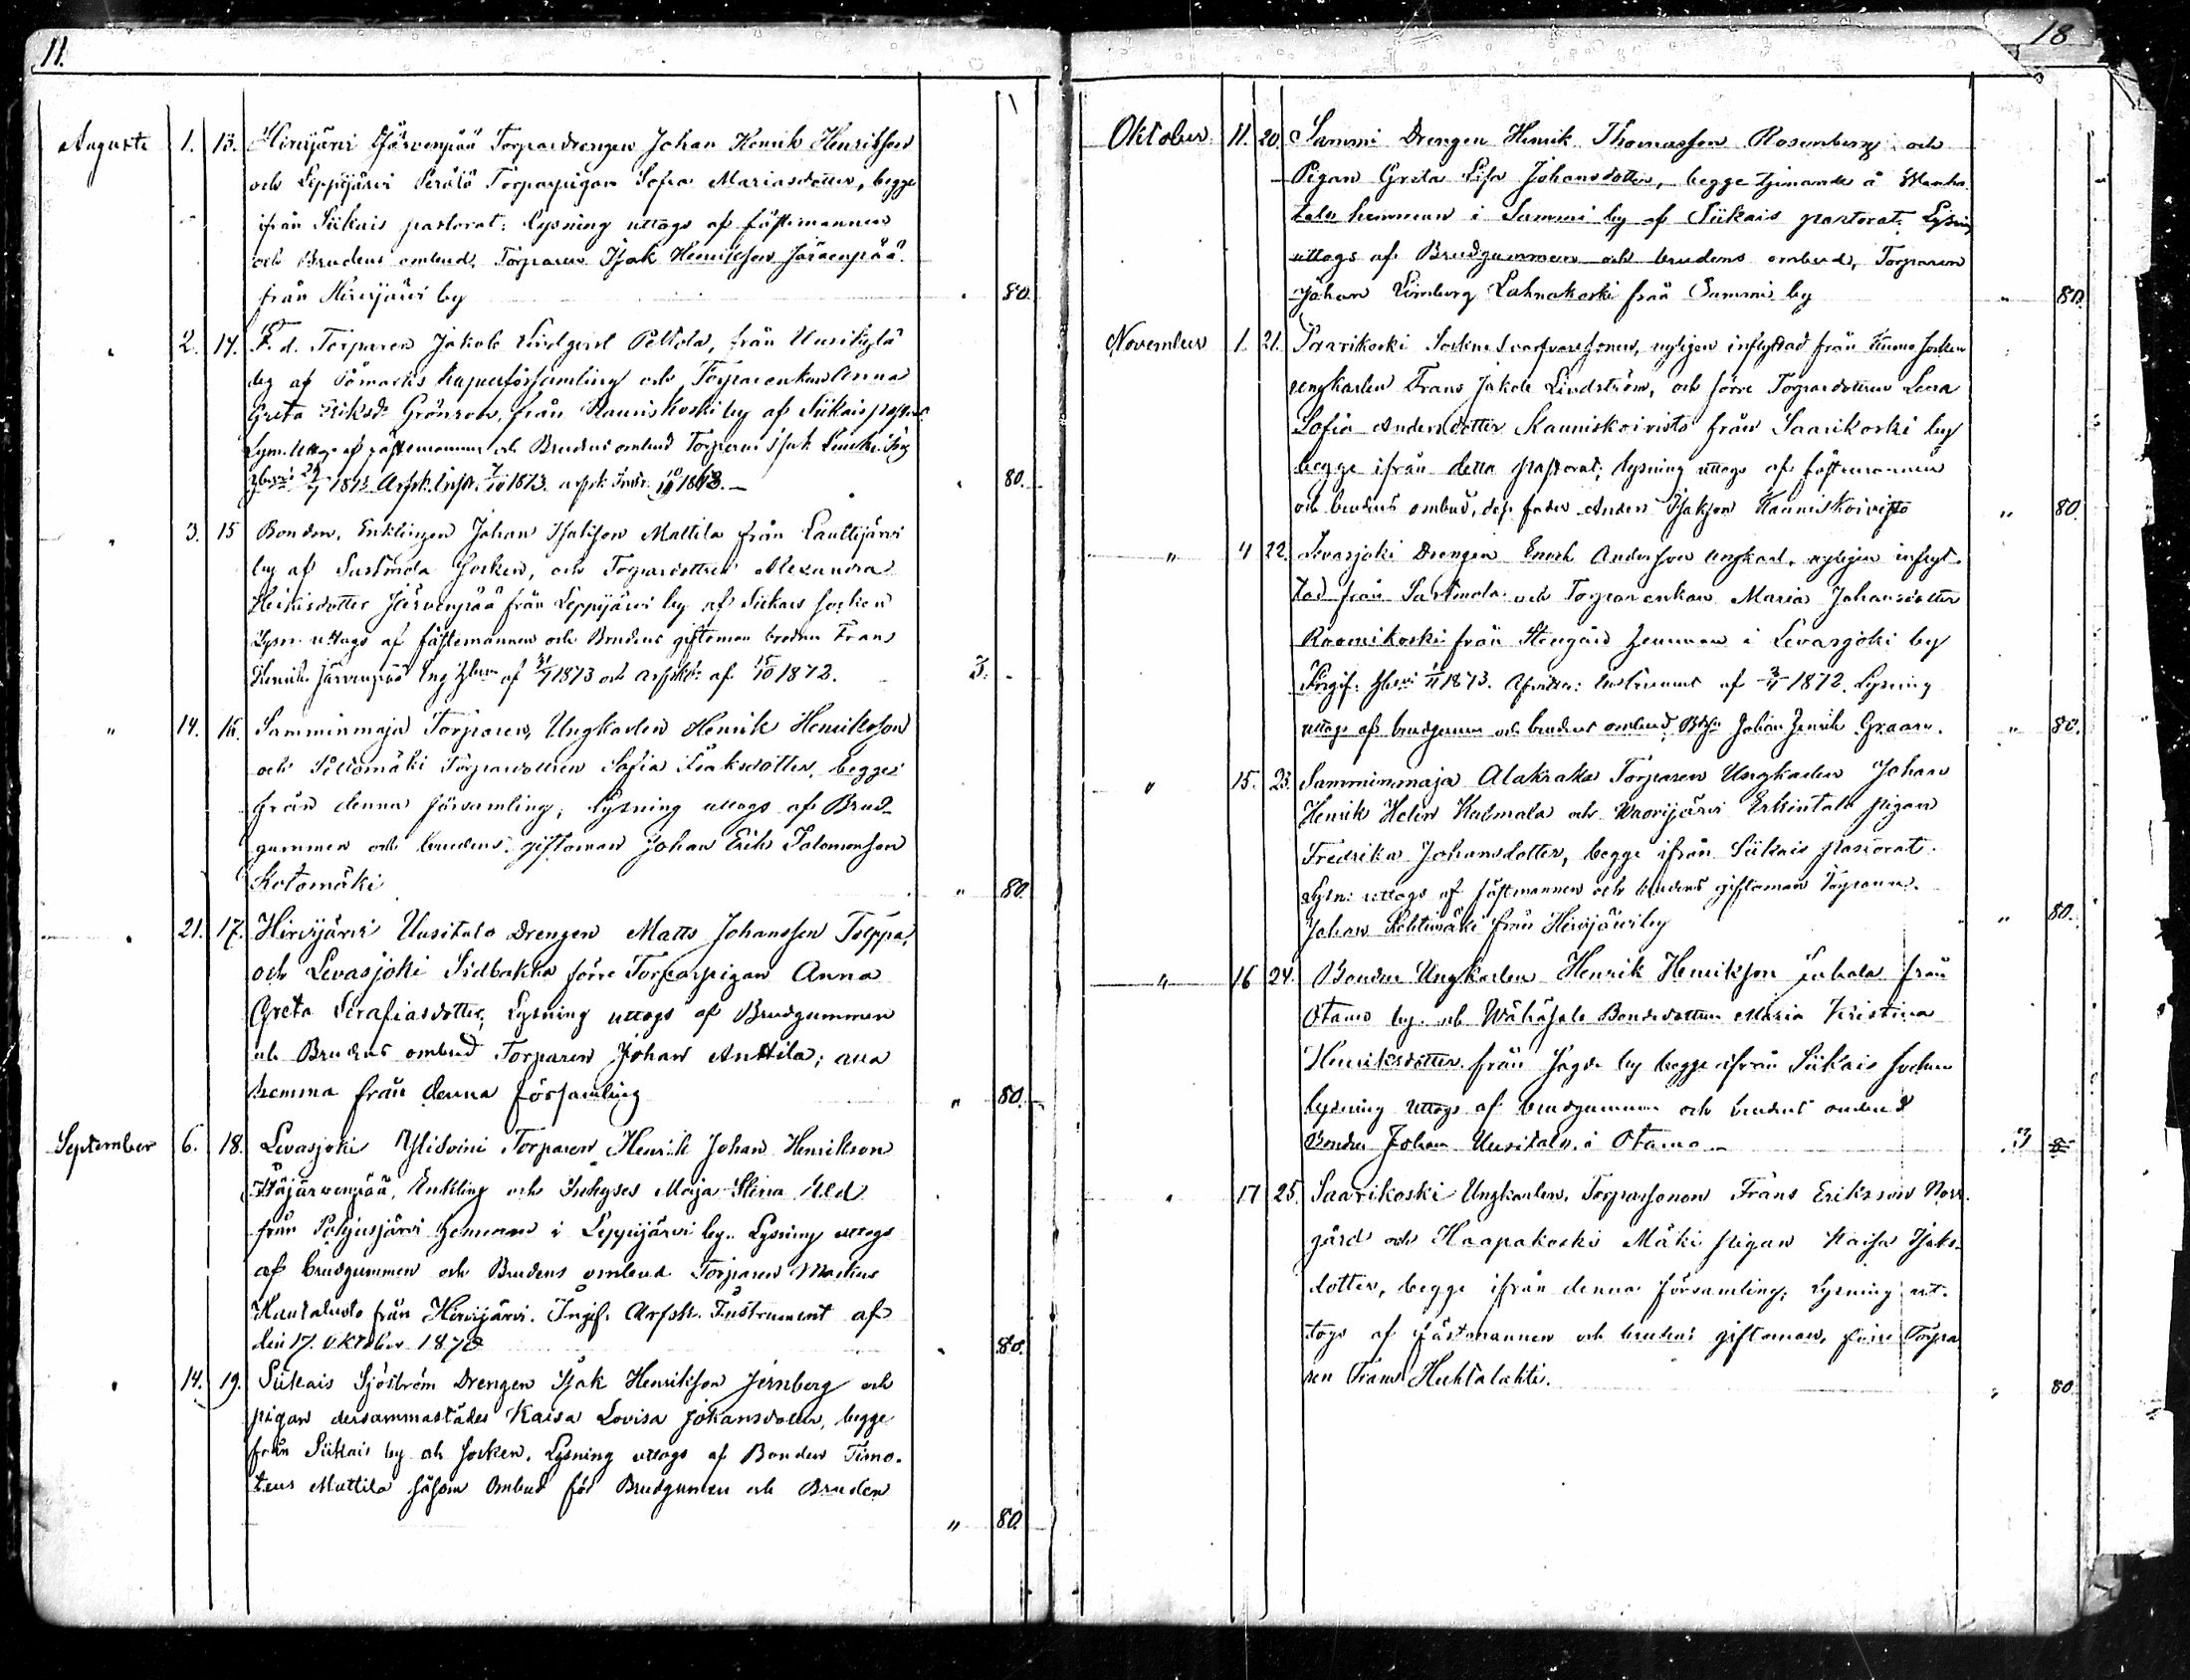 11.
Augusti 1. 13. Hirvijärvi Järvenpää Torparedrengen Johan Henrik Henriksson
och Leppijärvi Perälä Torparpigan Sofia Mariasdotter, begge
ifrån Siikais pastorat; lysning uttogs af fästemannen
och Brudens ombud, Torparen Isak Henriksson Järvenpää
från Hirvijärvi by " 80.
" 2. 14. F. d. Torparen Jakob Lindqvist Peltola, från Uusikylä
by af Påmarks kapellförsamling och Torparenkan Anna
Greta Eriksdr Grönroos, från Kauniskoski by af Siikais
Lysn. uttogs af fästemannen och Brudens ombud Torparen Isak
1873 Afsk. 1873. afsk. " 80.
" 3. 15 Bonden, Enklingen Johan Isaksson Mattila från Lauttijärvi
by af Sastmola Socken, och Torparedottren Alexandra
Heikisdotter Järvenpää från Leppijärvi by af Siikais socken
Lysn. uttogs af fästemannen och Brudens giftoman brodren Frans
Henrik Järvenpää af 1873 och af 1872. 3. -
" 14. 16. Samminmaja Torparen, Ungkarlen Henrik Henriksson
och Peltomäki Torparedottren Sofia Isaksdotter, begge
från denna församling; lysning uttogs af Brud-
gummen och brudens giftoman Johan Erik Salomonsson
Kotomäki " 80.
" 21. 17. Hirvijärvi Uusitalo Drengen Matts Johansson Tolppa,
och Levasjoki Sidbakka förre Torparpigan Anna
Greta Serafiasdotter; Lysning uttogs af Brudgummen
och Brudens ombud Torparen Johan Anttila; alla
hemma från denna församling " 80.
September 6. 18. Levasjoki Torparen Henrik Johan Henrikson
Enkling och Inhyses Maja Stina
från Pohjusjärvi hemman i Leppijärvi by. Lysning uttogs
af brudgummen och Brudens ombud Torparen Markus
Kautaluoto från Hirvijärvi. Ingif. Arfsk. Instrument af
den 17. Oktober 1872 " 80.
" 14. 19. Siikais Sjöström Drengen Isak Henriksson Jernberg och
pigan dersammastädes Kaisa Lovisa Johansdotter, begge
från Siikais by och socken. Lysning uttogs af Bonden Timo-
teus Mattila såsom Ombud för Brudgummen och Bruden
" 80.
18
Oktober 11. 20. Sammi Drengen Henrik Thomasson Rosenberg och
Pigan Greta Lisa Johansdotter, begge tjenande å
talo hemman i Sammi by af Siikais pastorat. Lysning
uttogs af Brudgummen och brudens ombud, Torparen
Johan Limberg Lahnakoski från Sammi by " 80.
November 1 21. Saarikoski Sockne Svarfvaresonen, nyligen inflyttad från Kumo socken
ungkarlen Frans Jakob Lindström, och förre Torparedottren Leena
Sofia Andersdotter Kauniskoivisto från Saarikoski by
begge ifrån detta pastorat; lysning uttogs af fästemannen
och brudens ombud, dess fader Anders Isaksson Kauniskoivisto " 80.
" 4 22. Levasjoki Drengen Enoch Andersson ungkarl, nyligen inflyt-
tad från Sastmola och Torparenkan Maria Johansdotter
Ruomikoski från Stengård hemman i Levasjoki by
Ingif. 1873. Afvittr: Instrument af 1872. Lysning
uttogs af brudgummen och brudens ombud Johan Henrik Graan. " 80.
" 15. 23. Samminmaja Alakraka Torparen Ungkarlen Johan
Henrik Helin Kalmala och Vuorijärvi Erkintalo pigan
Fredrika Johansdotter, begge ifrån Siikais pastorat.
Lysn: uttogs af fästmannen och brudens giftoman Torparen
Johan Lehtimäki från Hirvijärvi by " 80.
" 16 24. Bonden Ungkarlen Henrik Henriksson Juhala från
Otamo by och Wähäsalo Bondedottren Maria Kristina
Henriksdotter från by begge ifrån Siikais socken
lysning uttogs af brudgummen och brudens ombud
Bonden Johan Uusitalo i Otamo 3
" 17 25. Saarikoski Ungkarlen, Torparesonen Frans Eriksson Norr-
gård och Haapakoski Mäki pigan Kaisa Isaks-
dotter, begge ifrån denna församling; Lysning ut-
togs af fästmannen och brudens giftoman, förre Torpa-
ren Frans Huhtalahti. " 80.